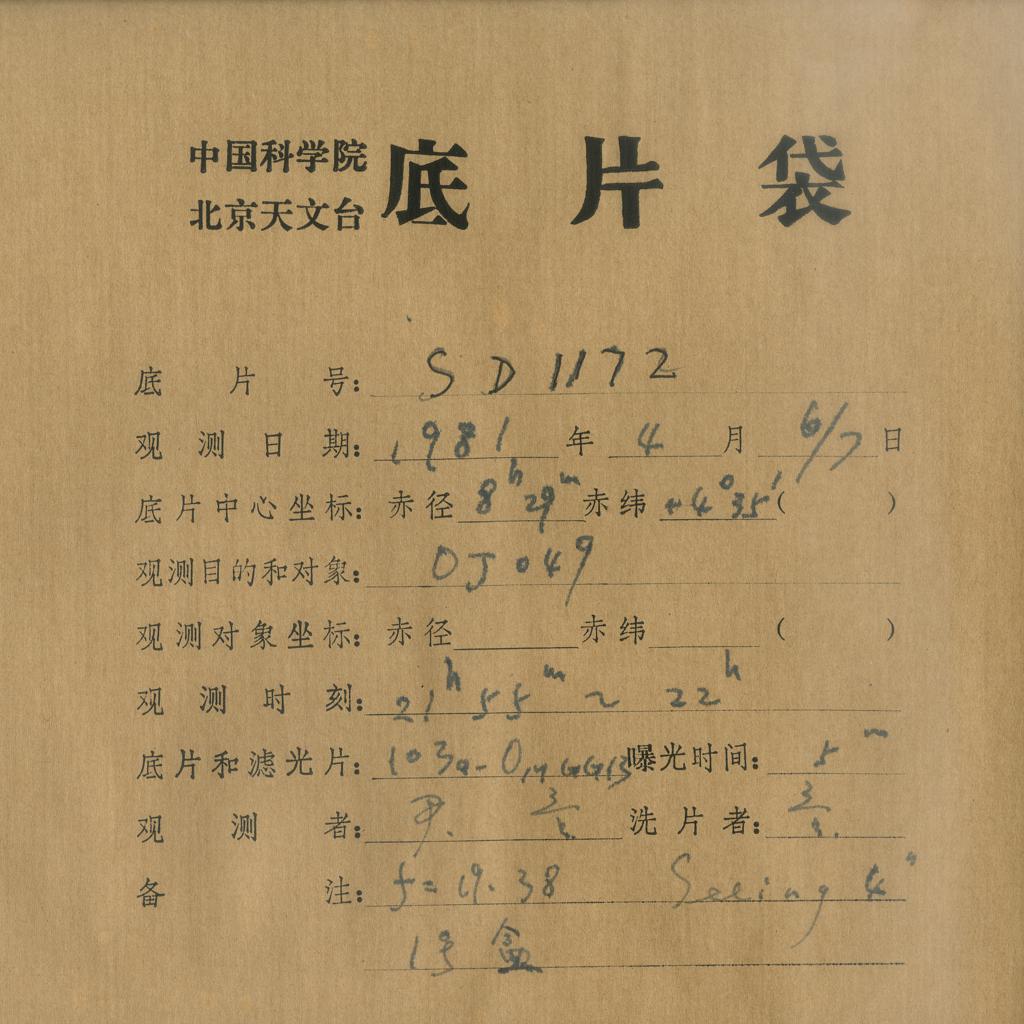 中国科学院
北京天文台
底片袋
底片号: SD1172
观测日期: 1981年4月6/7日
底片中心坐标: 赤径 8h29m 赤纬 +4°35′( )
观测目的和对象: OJ049
观测对象坐标: 赤径 赤纬 ( )
观测时刻: 21h55m~22h
底片和滤光片: 103a-O, 曝光时间: 5m
观测者: 洗片者:
备注: f=19.38 Seeing 4"
1号盒